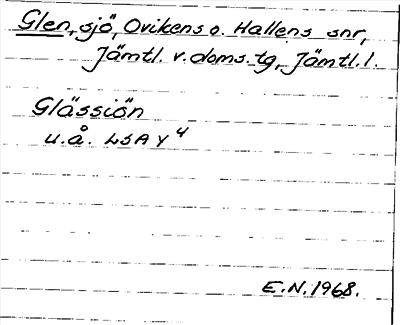 Glen, sjö, Ovikens o. Hallens snr,
Jämtl. v. doms. tg, Jämtl. l.
Glässiön
u.å. LSA Y 4
E.N. 1968.